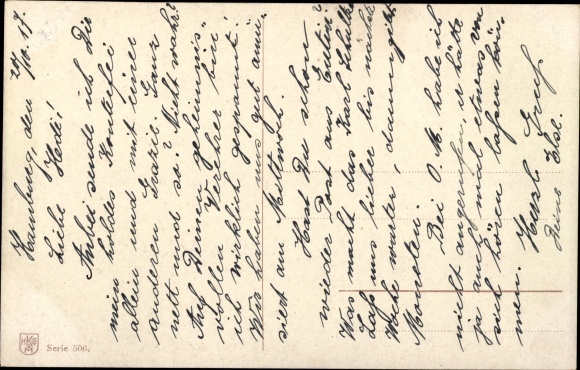 Hamburg, den 24/VII. 17.
Liebe Hedi!
Anbei sende ich Dir
mein holdes Konterfei
allein und mit einer
anderen Grazie. Ganz
nett und so? Nicht wahr?
Auf Deinen geheimnis-
vollen Verehrer bin
ich wirklich gespannt.
Wir haben uns gut amü-
siert am Mittwoch.
Hast Du schon
wieder Post aus Eutin?
Was macht das Karl
Laß uns lieber bis nächste
Woche warten, dann gibt
Moneten.
Bei O. M. habe ich
nicht angerufen, er hätte
ja auch mal etwas von
sich hören lassen kön-
nen.
Herzl. Gruß
Deine Else.
Serie 506.